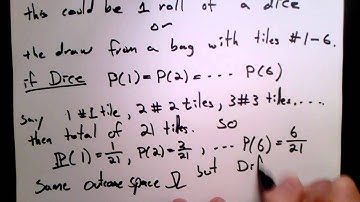 this could be 1 roll of a dice
or
the draw from a bag with tiles #1-6.
if Dice P(1)=P(2)=.... P(6)
Say 1 #1 tile, 2 #2 tiles, 3 #3 tiles,....
then total of 21 tiles. So
P(1)=1/21, P(2)=2/21, ... P(6)=6/21
Same outcome space Ω but Dif